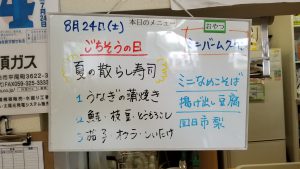 8月24日(土)
本日のメニュー
ごちそうの日
夏の散らし寿司
1 うなぎの蒲焼き
2 鮭・枝豆・とうもろこし
3 茄子・オクラ・しいたけ
おやつ
ミニバームクーヘン
ミニなめこそば
揚げ出し豆腐
四日市梨
頂ガス